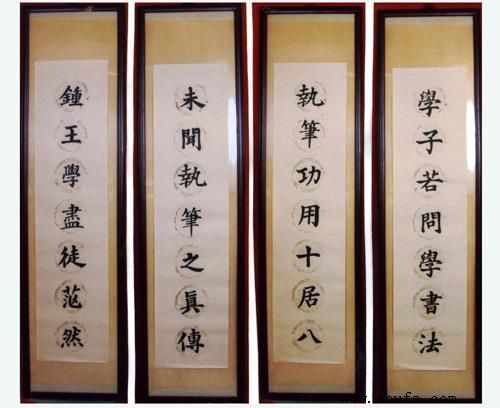 學子若問學書法
執筆功用十居八
未聞執筆之眞傳
鍾王學盡徒茫然